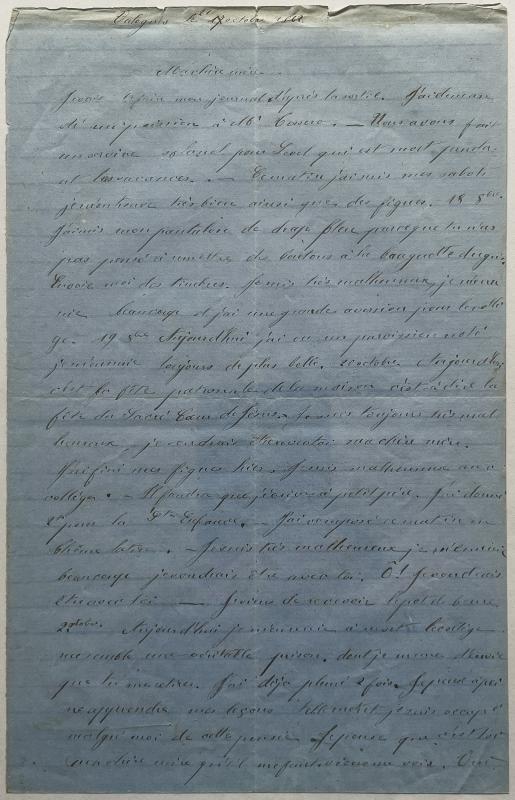 le 17 octobre 186
Ma chère mère
Je vais mon journal d'après la sortie. J'ai deman
dé une permission à Mr . — Nous avons fait
un service pour qui est mort penda
nt les vacances. — Ce matin j'ai mis mes sabots
je m'en trouve très bien ainsi que des figues. 18 8bre
J'ai mis mon pantalon de drap bleu parceque tu n'as
pas pensé à mettre des boutons à la braguette du gris.
Envoie moi des timbres. Je suis très malheureux, je m'en
nuie beaucoup et j'ai une grande aversion pour le collè
ge. 19 8bre Aujourd'hui j'ai eu un paroissien noté
je m'ennuie toujours de plus belle. 20 octobre. Aujourd'hui
c'est la fête patronale de la maison c'est à dire la
fête du Sacré Cœur de Jésus. Je suis toujours très mal
heureux je voudrais être avec toi ma chère mère.
J'ai fini mes figues hier. Je suis malheureux au
collège. — Il faudra que j'écrive à petit père. J'ai donné
2s pour la Ste Enfance. — J'ai composé ce matin en
thème latin. — Je suis très malheureux je m'ennuie
beaucoup je voudrais être avec toi. Ô! Je voudrais
être avec toi — Je viens de recevoir le pot de beurre
2 octobre. Aujourd'hui je m'ennuie à mort le collège
me semble une véritable prison, dont je meurs d'envie
que tu me retires. J'ai déjà pleuré 2 fois. Je peux à pei
ne apprendre mes leçons tellement je suis occupé
malgré moi de cette pensée. Je pense que c'est
ma chère mère qu'il me faut vienne voir. Oui